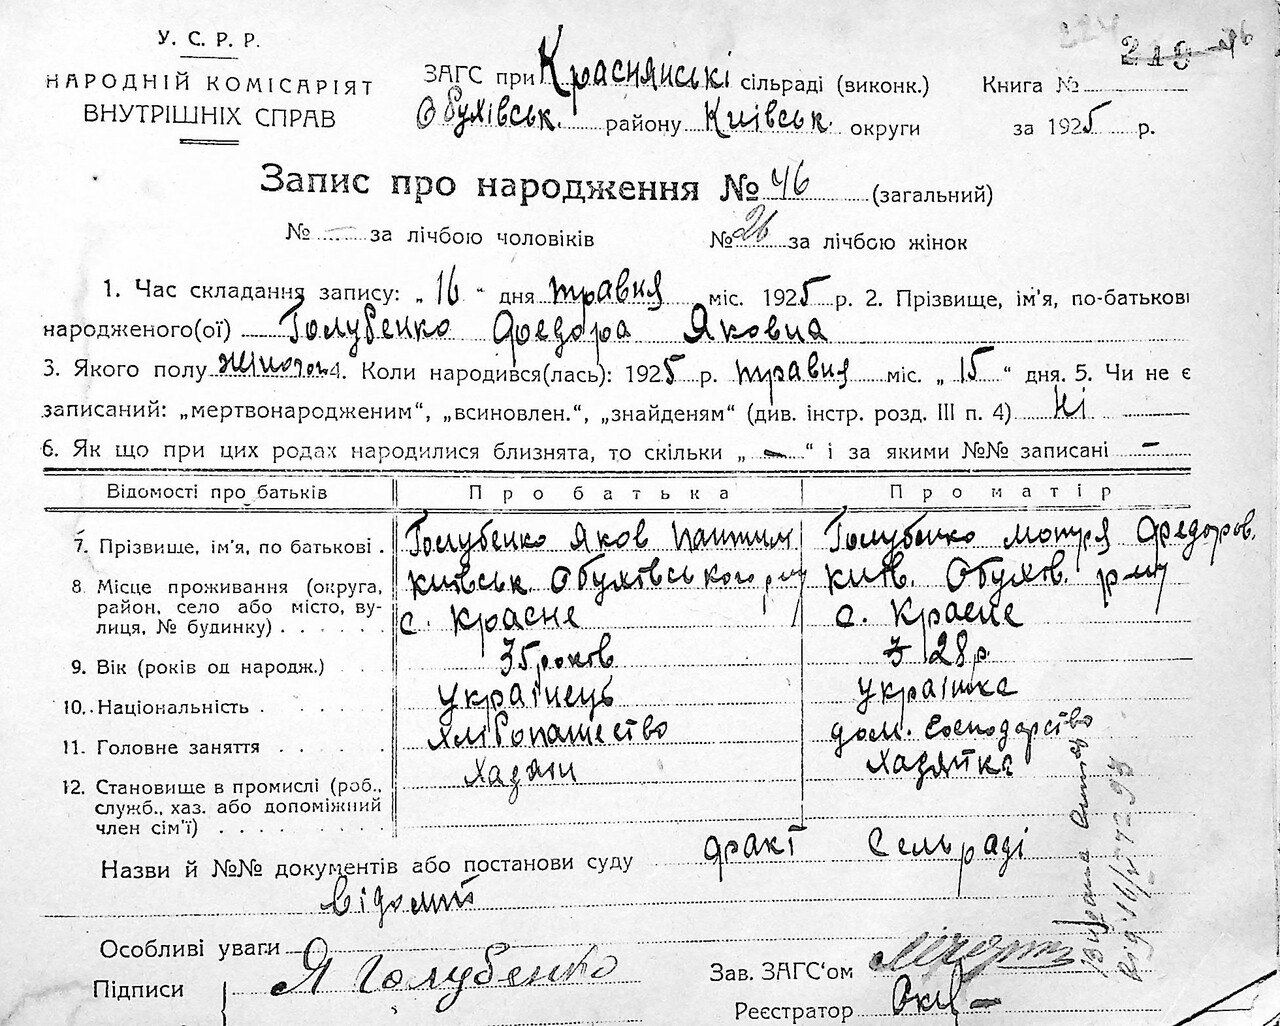 У. С. Р. Р.
НАРОДНІЙ КОМІСАРІЯТ
ВНУТРІШНІХ СПРАВ
ЗАГС при Краснянські сільраді (виконк.)
Обухівськ. району Київськ. округи
219 46
Книга №
за 1925 р.
Запис про народження № 46 (загальний)
№ — за лічбою чоловіків № 26 за лічбою жінок
1. Час складання запису: „16“ дня травня міс. 1925 р. 2. Прізвище, ім'я, по-батькові
народженого(ої) Голубенко Федора Яковна
3. Якого полу жіночого 4. Коли народився(лась): 1925 р. травня міс. „15“ дня. 5. Чи не є
записаний: „мертвонародженим“, „всиновлен.“, „знайденям“ (див. інстр. розд. III п. 4) Ні
6. Як що при цих родах народилися близнята, то скільки „—“ і за якими №№ записані —
Відомості про батьків Про батька Про матір
7. Прізвище, ім'я, по батькові . Голубенко Яков Голубенко Мотря Федоров.
8. Місце проживання (округа, район, село або місто, вулиця, № будинку) . . . . . . Київськ. Обухівського р-ну с. Красне Київ. Обухів. р-ну с. Красне
9. Вік (років од народж.) . . . 35 років 28 р.
10. Національність . . . . . українець українка
11. Головне заняття . . . . . хліборопашество дом. господарство
12. Становище в промислі (роб., служб., хаз. або допоміжний член сім'ї) . . . . . . . . . хазяїн хазяйка
Назви й №№ документів або постанови суду факт Сельраді
відомий
Особливі уваги
Підписи Я Голубенко
Зав. ЗАГС'ом
Реєстратор